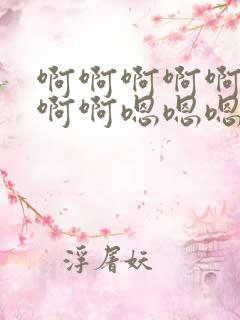 啊啊啊啊啊
啊啊嗯嗯嗯
浮屠妖